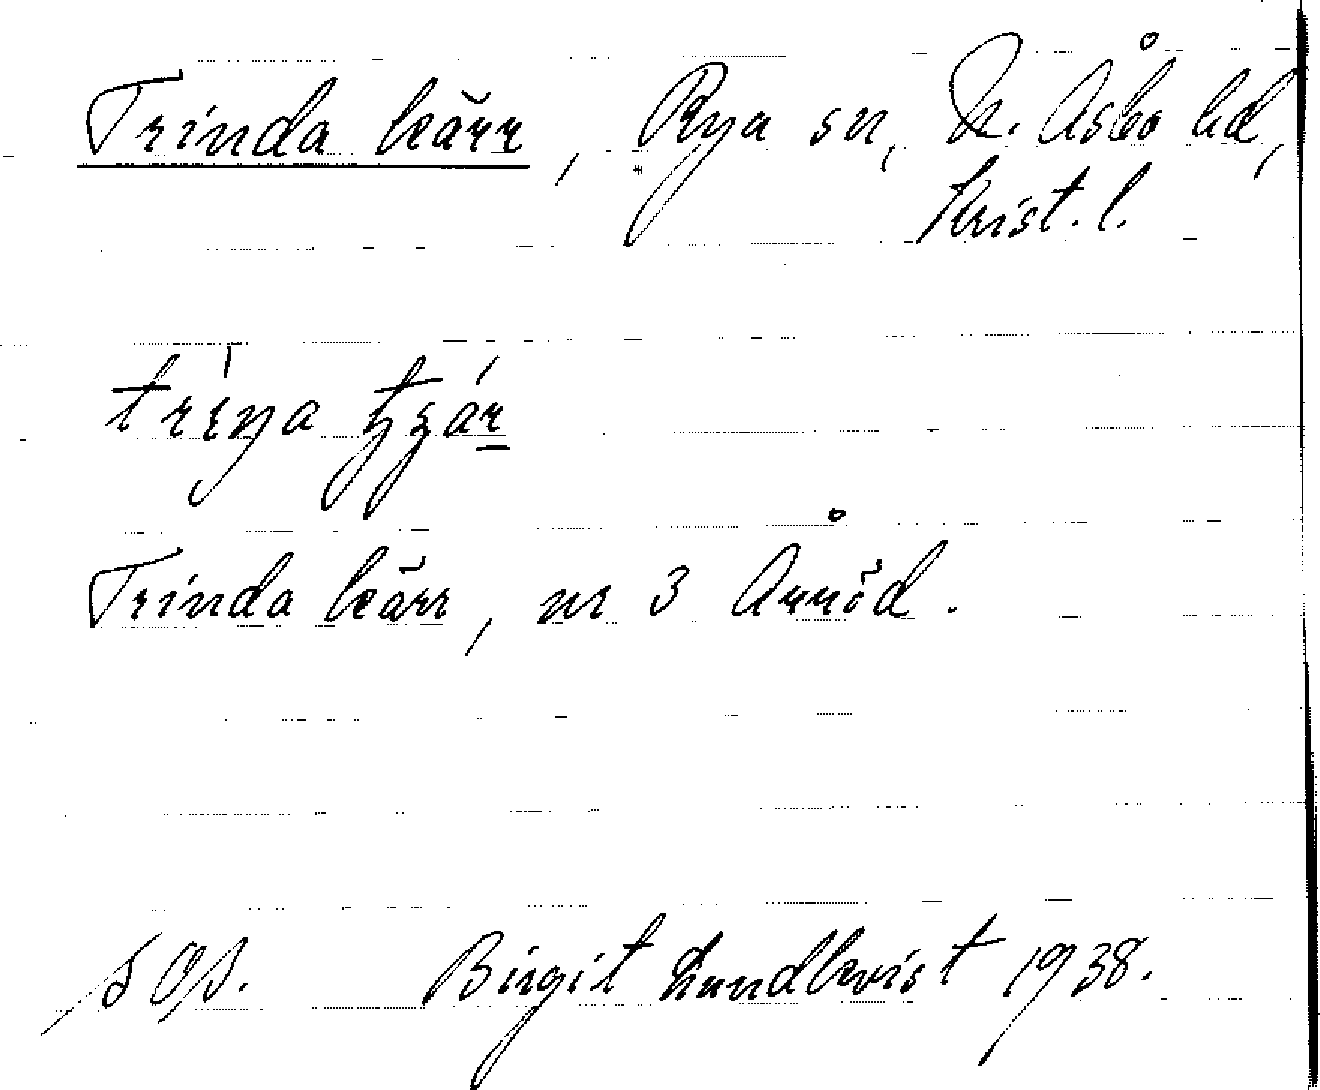 Trinda kärr, Rya sn, N. Åsbo hd,
Krist. l.
Trinda kärr, nr 3 Årröd.
Birgit Lundkvist 1938.